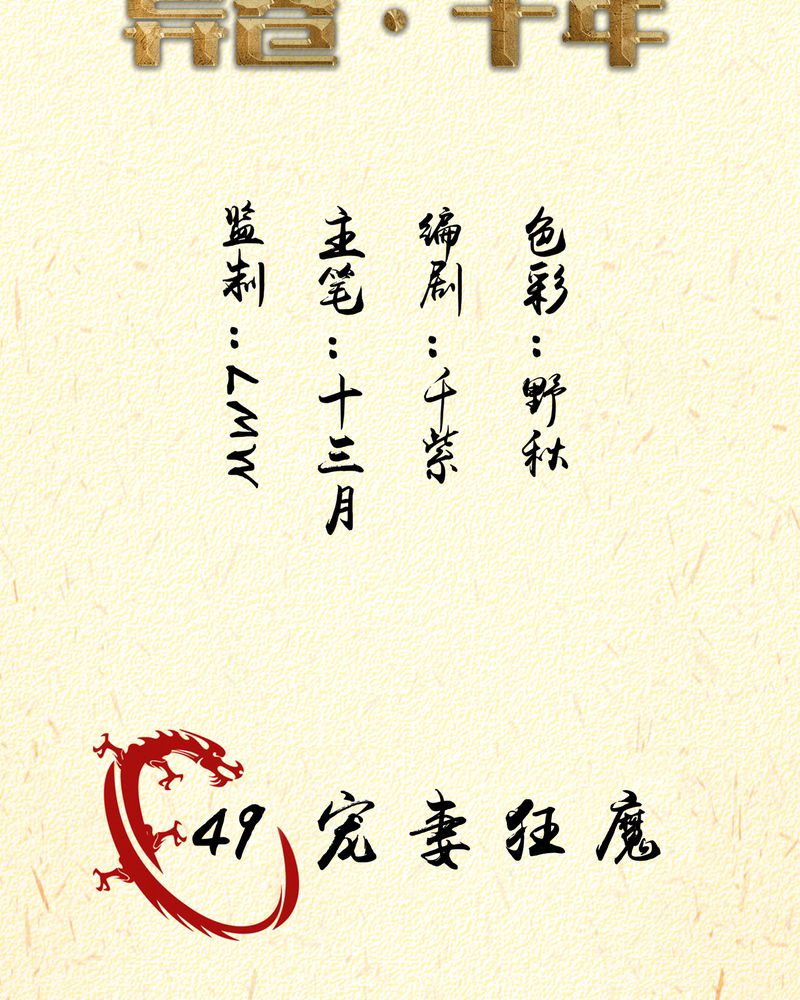 监制：7MW
主笔：十三月
编剧：千紫
色彩：野秋
49 宠妻狂魔